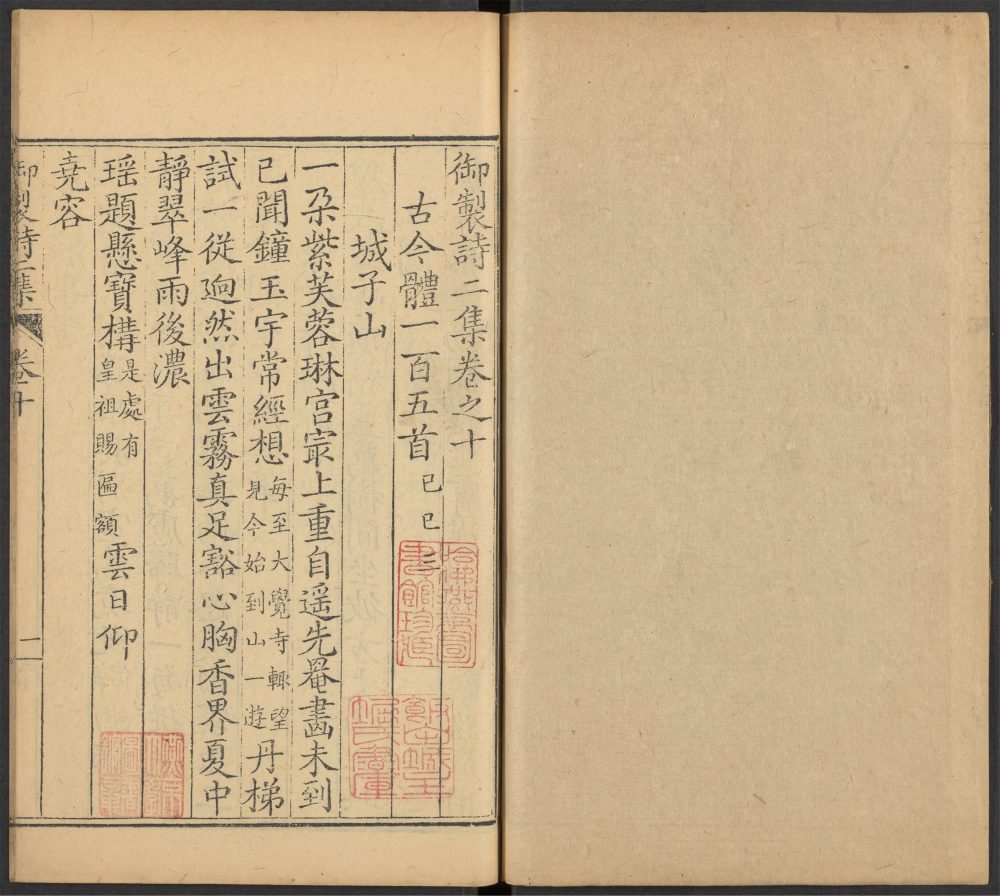 御製詩二集卷之十
古今體一百五首己巳三
城子山
一朶紫芙蓉琳宫㝡上重自遥先罨畵未到
已聞鐘玉宇常經想每至大覺寺輒望見今始到山一遊丹梯
試一從逈然出雲霧真足豁心胸香界夏中
靜翠峰雨後濃
瑶題懸寶構是處有皇祖賜匾額雲日仰
堯容
御製詩二集 卷十 一